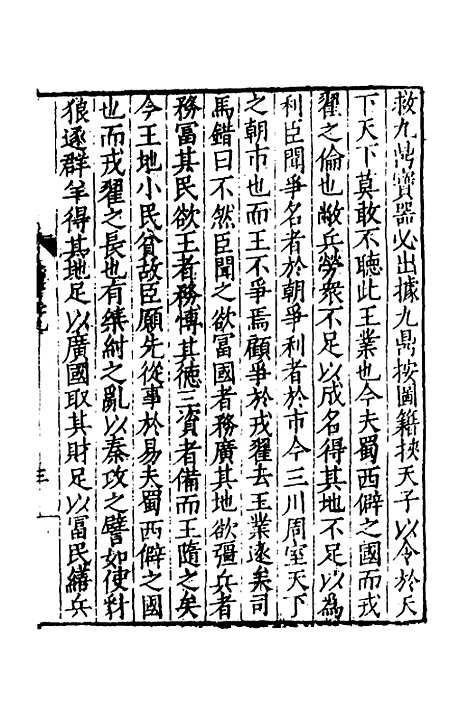 救九鼎寶器必出據九鼎按圖籍挾天子以令於天
下天下莫敢不聽此王業也今夫蜀西僻之國而戎
翟之倫也敝兵勞衆不足以成名得其地不足以為
利臣聞爭名者於朝爭利者於市今三川周室天下
之朝市也而王不爭焉顧爭於戎翟去王業遠矣司
馬錯曰不然臣聞之欲富國者務廣其地欲彊兵者
務富其民欲王者務博其德三資者備而王隨之矣
今王地小民貧故臣願先從事於易夫蜀西僻之國
也而戎翟之長也有桀紂之亂以秦攻之譬如使豺
狼逐群羊得其地足以廣國取其財足以富民繕兵